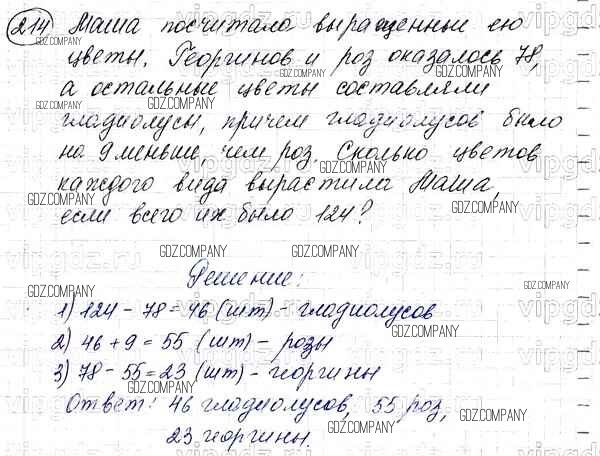 214 Маша посчитала выращенные ею
цветы. Георгинов и роз оказалось 78,
а остальные цветы составляли
гладиолусы, причем гладиолусов было
на 9 меньше, чем роз. Сколько цветов
каждого вида вырастила Маша,
если всего их было 124?
Решение:
1) 124 - 78 = 46 (шт) - гладиолусов
2) 46 + 9 = 55 (шт) - розы
3) 78 - 55 = 23 (шт) - георгины
Ответ: 46 гладиолусов, 55 роз,
23 георгины.
GDZ.COMPANY
vipgdz.ru